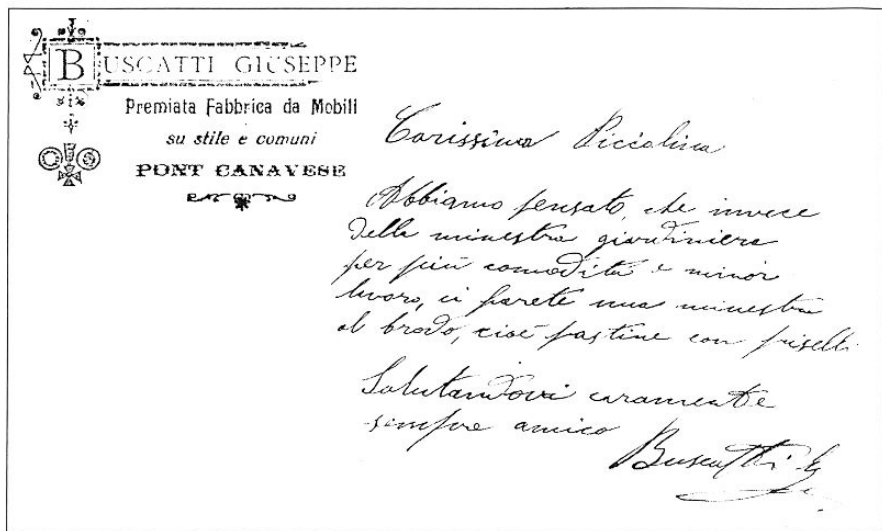 BUSCATTI GIUSEPPE
Premiata Fabbrica da Mobili
su stile e comuni
PONT CANAVESE
Carissima Piccolina
Abbiamo pensato, che invece
della minestra giardiniera
per più comodità e minor
lavoro, ci farete una minestra
al brodo, cioè pastine con piselli.
Salutandovi caramente
sempre amico
Buscatti G